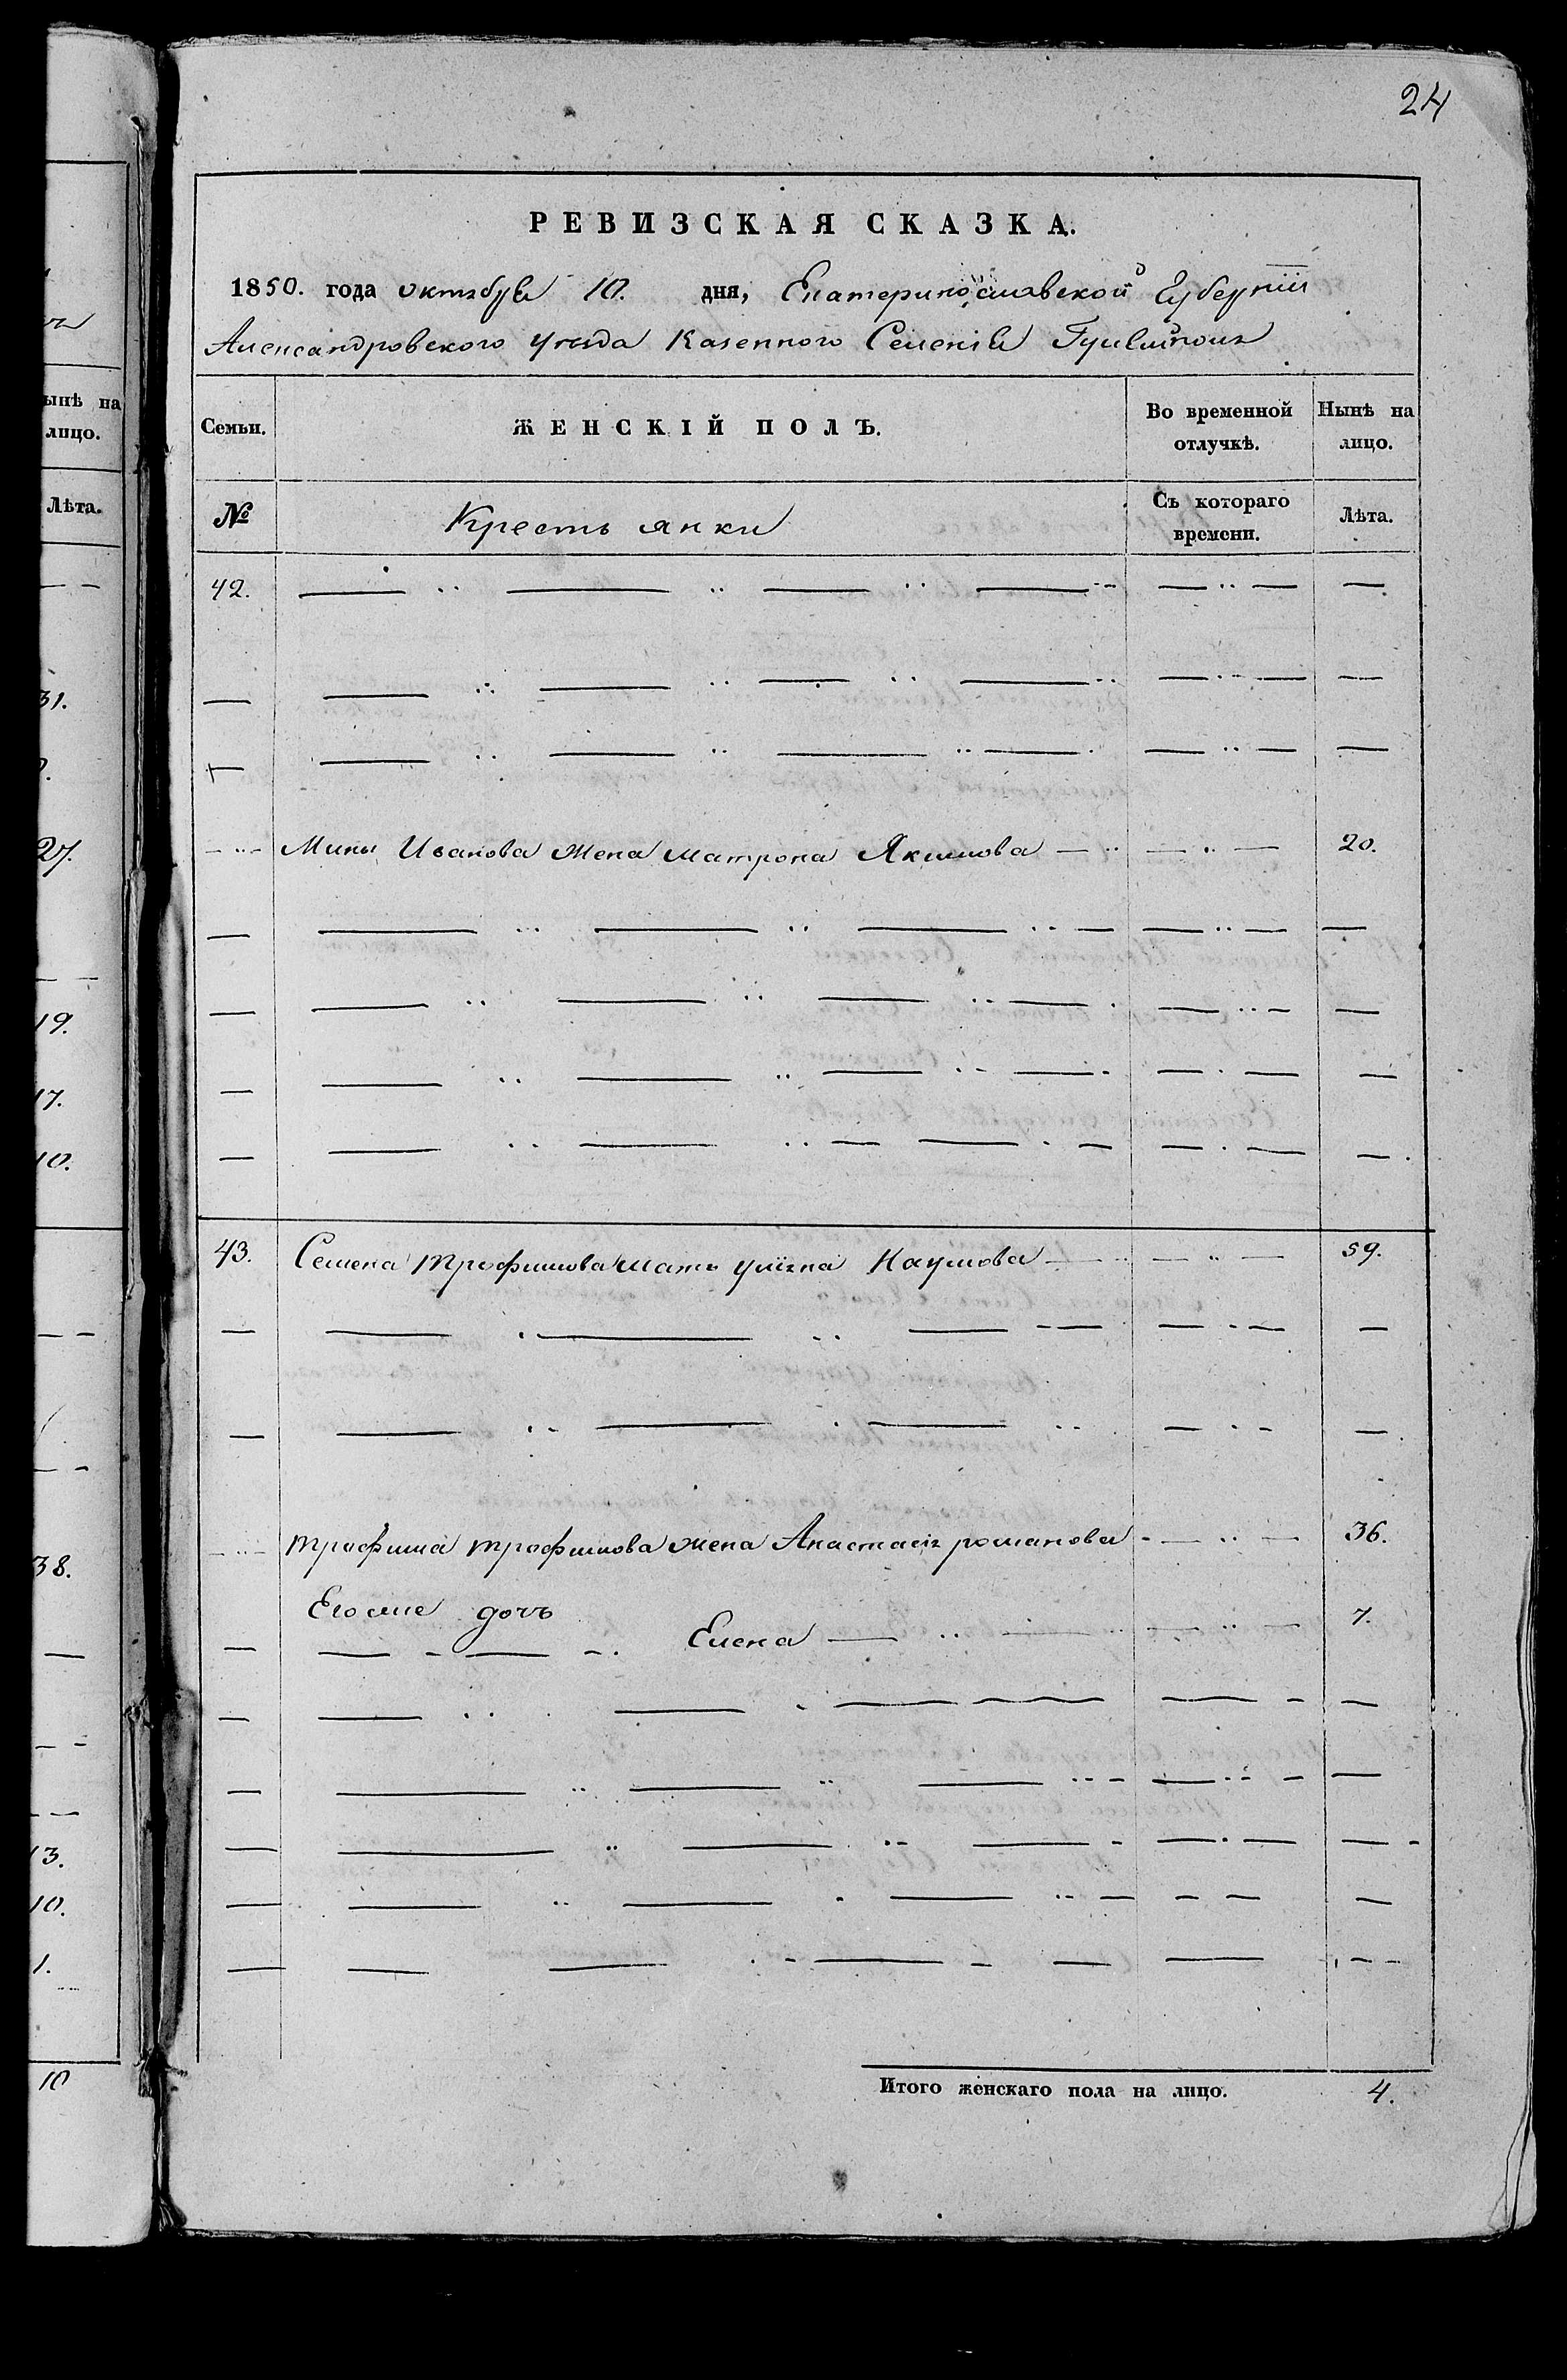 24
РЕВИЗСКАЯ СКАЗКА.
1850. года октября 10. дня, Екатеринославской Губерніи
Александровского уезда Казенного Селенія Гуляйполя
ынѣ на лицо.
Лѣта.
31.
27.
19.
17.
10.
38.
13.
10.
1.
10
Семьи. ЖЕНСКІЙ ПОЛЪ. Во временной отлучкѣ. Нынѣ на лицо.
№ Крестьянки Съ котораго времени. Лѣта.
42.
Мины Иванова жена Матрона Якимова 20.
43. Семена Трофимова мать Наумова 59.
Трофима Трофимова жена Анастасія романова 36.
Его дочь Елена 7.
Итого женскаго пола на лицо. 4.